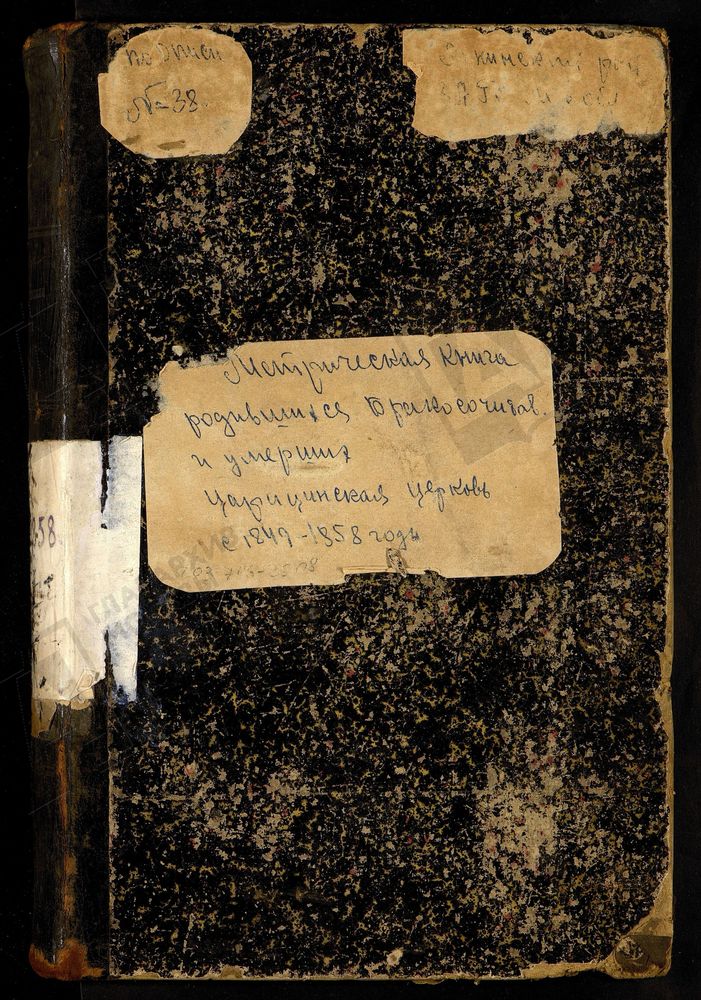 по описи
№-38.
ЗАГС
Метрическая Книга
родившихся Бракосочитав.
и умерших
царицинская церковь
с 1849-1858 годы
858